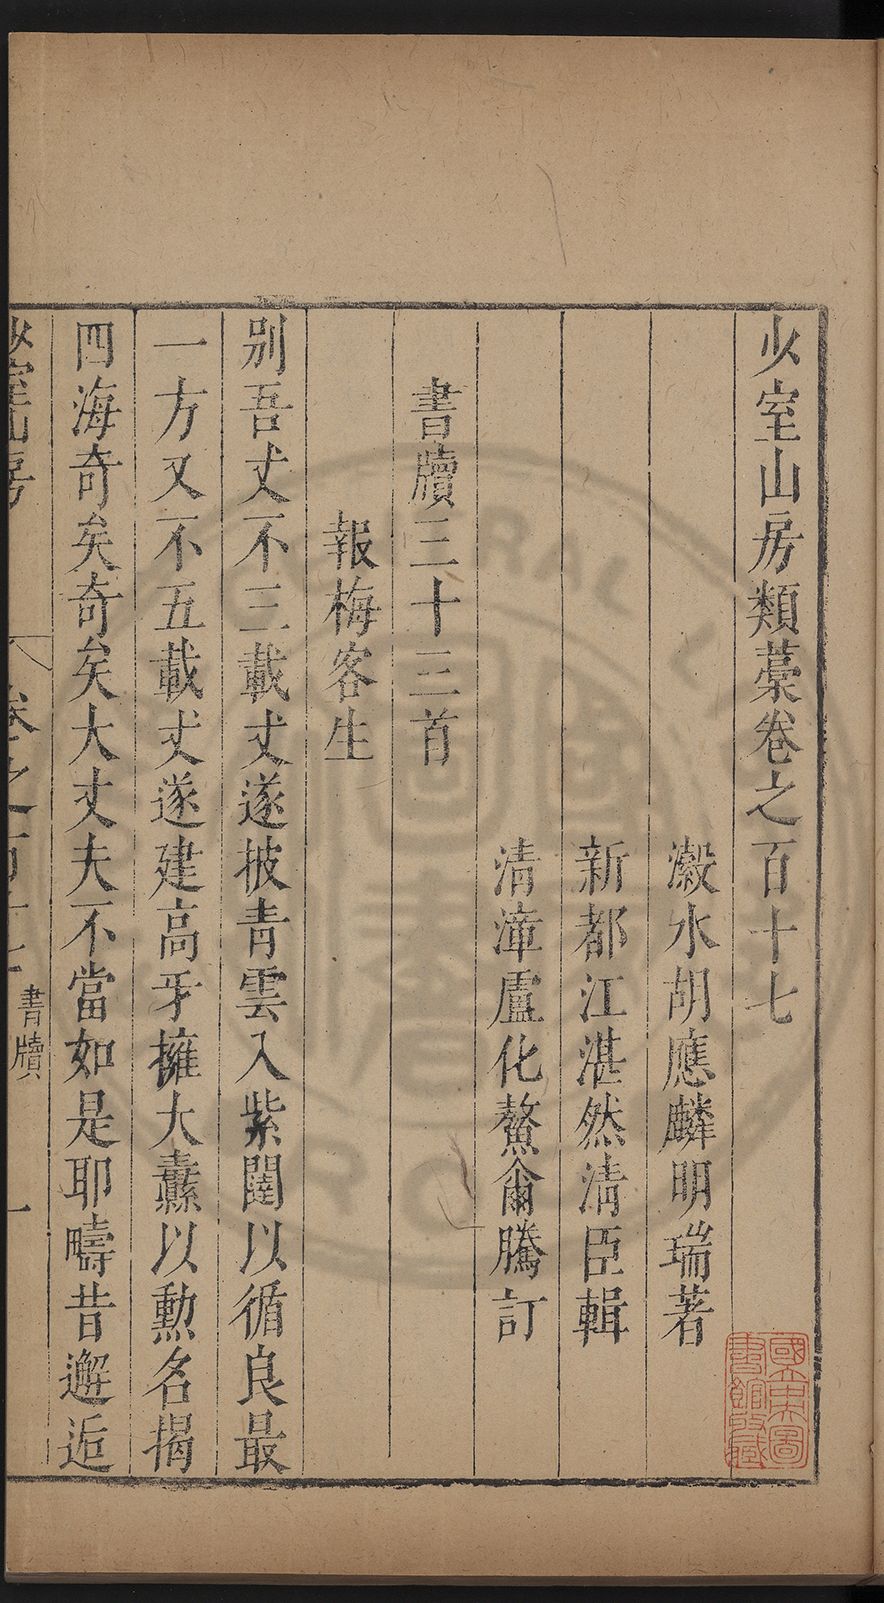 少室山房類藁卷之百十七
瀫水胡應麟明瑞著
新都江湛然清臣輯
清漳盧化鰲侖騰訂
書牘三十三首
報梅客生
别吾丈不三載丈遂披青雲入紫闥以循良最
一方又不五載丈遂建高牙擁大纛以勲名揭
四海奇矣奇矣大丈夫不當如是耶疇昔邂逅
少室山房
卷之百十七
書牘
一
國立中央圖
書館收藏